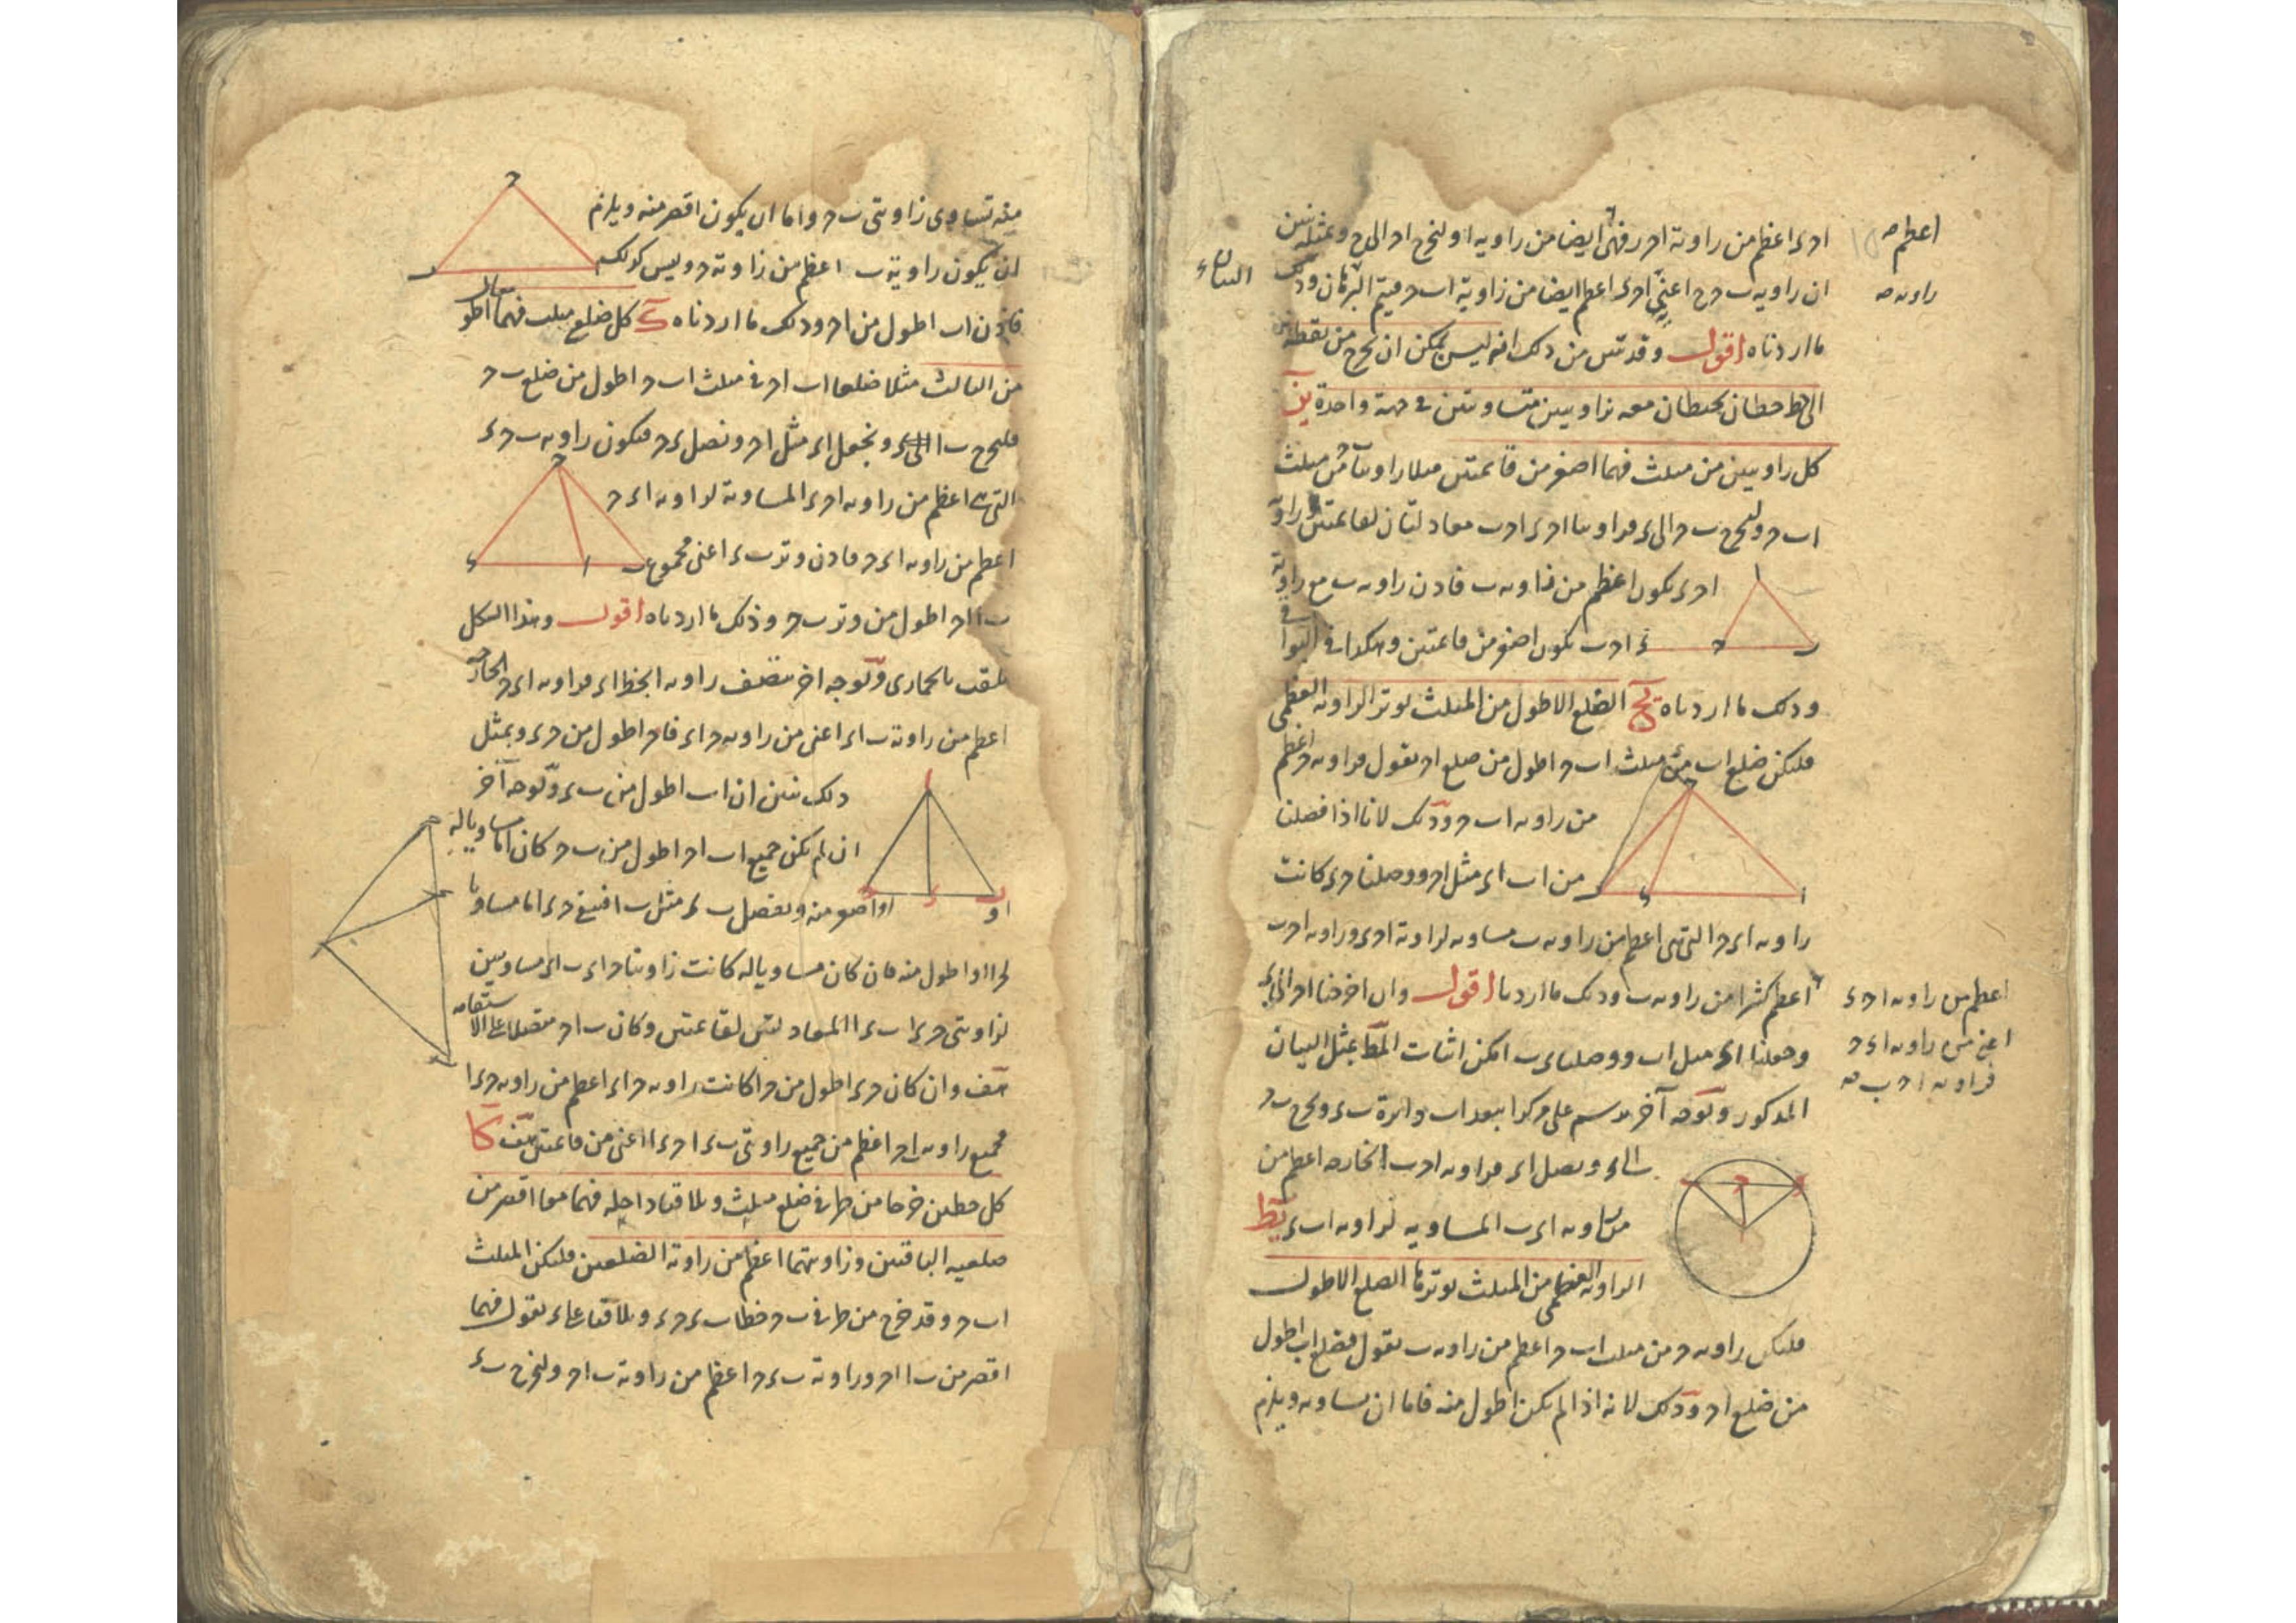 ا ح ء اعظم من زاوية ا ح ر فهى ايضا من زاويه ا ولنخرج ا ح الى ح وبمثله نبين
ان زاويه ب ح ح اعنى ا ح ء اعظم ايضا من زاوية ا ب ح فيتم البرهان وذلك
ما اردناه اقول وقد تبين من ذلك انه ليس يمكن ان يخرج من نقطة
الى خط خطان يحيطان معه بزاويتين متساويتين فى جهة واحدة يز
كل زاويتين من مثلث فهما اصغر من قائمتين مثلا زاويتا من مثلث
ا ب ح ولنخرج ب ح الى ء فزاويتا ا ح ء ا ح ب معادلتان لقائمتين وزاوية
ا ح ء يكون اعظم من زاويه ب فاذن زاويه ب مع زاوية
ا ح ب يكون اصغر من قائمتين وهكذا فى البواقى
وذلك ما اردناه يح الضلع الاطول من المثلث يوتر الزاويه العظمى
فليكن ضلع ا ب من مثلث ا ب ح اطول من ضلع ا ح نقول فزاويه ح اعظم
من زاويه ا ب ح وذلك لانا اذا فصلنا
من ا ب ا ء مثل ا ح ووصلنا ح ء كانت
زاويه ا ء ح التى هى اعظم من زاويه ب مساويه لزاوية ا ح ء وزاويه ا ح ب
اعظم كثيرا من زاويه ب وذلك ما اردنا اقول وان اخرجنا ا ح الى ء
وجعلنا ا ء مثل ا ب ووصلنا ء ب امكن اثبات المط بمثل البيان
المذكور وبوجه آخر نرسم على مركز ا ببعد ا ب دائرة ب ء ونخرج ب ح
الى ء ونصل ا ء فزاويه ا ح ب الخارجه اعظم من
زاويه ا ء ب المساويه لزاويه ا ب ء يط
الزاويه العظمى من المثلث يوترها الضلع الاطول
فليكن زاويه ح من مثلث ا ب ح اعظم من زاويه ب نقول فضلع ا ب اطول
من ضلع ا ح وذلك لانه اذا لم يكن اطول منه فاما ان يساويه ويلزم
اعظم
زاويه
اعظم من زاويه ا ح ء
اعنى من زاويه ا ء ح
فزاويه ا ح ب
منه تساوى زاويتى ب ح واما ان يكون اقصر منه ويلزم
ان يكون زاوية ب اعظم من زاوية ح وليس كذلك
فاذن ا ب اطول من ا ح وذلك ما اردناه ك كل ضلعى مثلث فهما اطول
من الثالث مثلا ضلعا ا ب ا ح فى مثلث ا ب ح اطول من ضلع ب ح
فلنخرج ب ا الى ء ونجعل ا ء مثل ا ح ونصل ء ح فيكون زاويه ب ح ء
التى هى اعظم من زاويه ا ح ء المساوية لزاويه ا ء ح
اعظم من زاويه ا ء ح فاذن وتر ب ء اعنى مجموع
ب ا ا ح اطول من وتر ب ح وذلك ما اردناه اقول وهذا الشكل
يلقب بالحمارى وبوجه اخر ننصف زاويه ا بخط ا ء فزاويه ا ء ح الخارجه
اعظم من زاوية ب ا ء اعنى من زاويه ح ا ء فا ح اطول من ح ء وبمثل
ذلك نبين ان ا ب اطول من ب ء وبوجه آخر
ان لم يكن جميع ا ب ا ح اطول من ب ح كان اما مساويا له
او اصغر منه ونفصل ب ء مثل ب ا فيبقى ح ء اما مساويا
لـ ح ا او اطول منه فان كان مساويا له كانت زاويتا ح ا ء ب ا ء مساويتين
لزاويتى ح ء ا ب ء ا المعادلتين لقائمتين وكان ب ا ح متصلا على الاستقامه
هف وان كان ح ء اطول من ح ا كانت زاويه ح ا ء اعظم من زاويه ح ء ا
فجميع زاويه ب ا ح اعظم من جميع زاويتى ب ء ا ح ء ا اعنى من قائمتين هف كا
كل خطين خرجا من طرفى ضلع مثلث وتلاقيا داخله فهما معا اقصر من
ضلعيه الباقيين وزاويتهما اعظم من زاوية الضلعين فليكن المثلث
ا ب ح وقد خرج من طرفى ب ح خطا ب ء ح ء وتلاقيا على ء نقول فهما
اقصر من ب ا ا ح وزاوية ب ء ح اعظم من زاوية ب ا ح ولنخرج ب ء